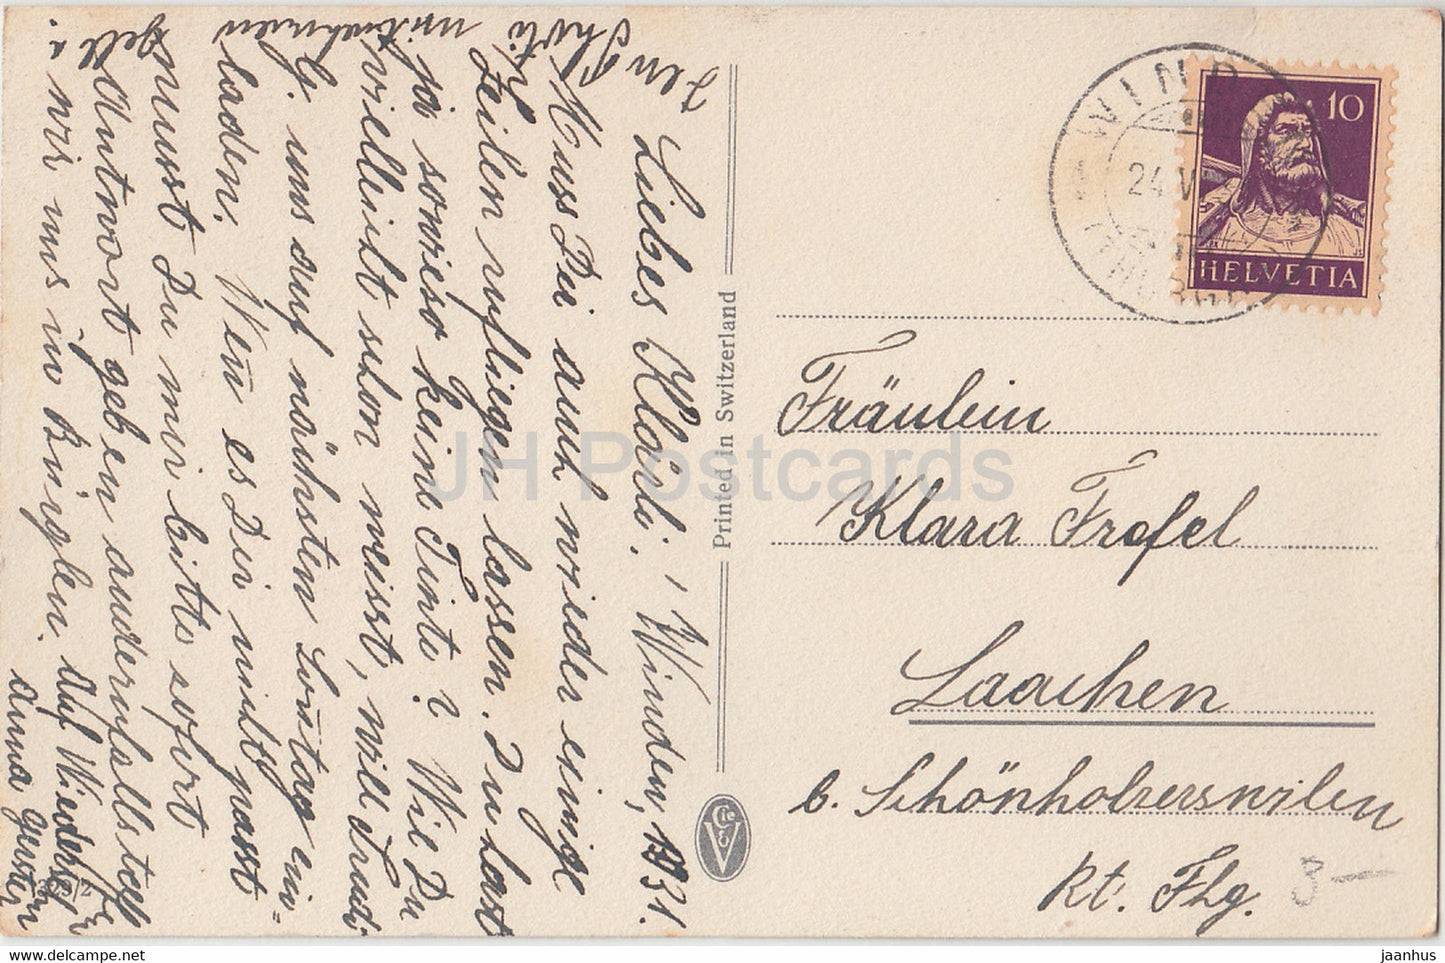 Winden, 1931.
Liebes Klärli!
Muss Dir auch wieder einige
Zeilen zufliegen lassen. Du hast
ja sowieso keine Tinte? Wie Du
vielleicht schon weisst, will Trudi
G. uns auf nächsten Soñtag ein=
laden. Weñ es Dir nicht passt
musst Du mir bitte sofort
Antwort geben andernfalls treff
wir uns in Bürglen. Auf Wiederseh
Anna
gell
mitnehmen
den
Printed in Switzerland
Cie
V
1329/2
WIND
24.V
(THURGAU)
10
HELVETIA
Fräulein
Klara Frefel
Laachen
b. Schönholzerswilen
Kt. Thg.
3-
JH Postcards
www.delcampe.net
jaanhus